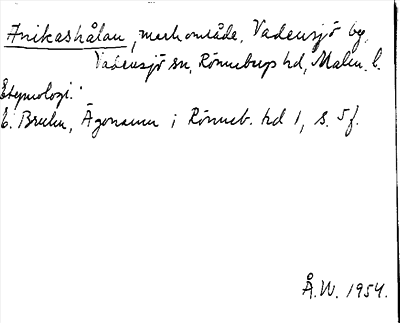 Anikashålan, markområde, Vadensjö by,
Vadensjö sn, Rönnebergs hd, Malm. l.
Etymologi:
E. Bruhn, Ägonamn i Rönneb. hd 1, s. 5 f.
Å.W. 1954.